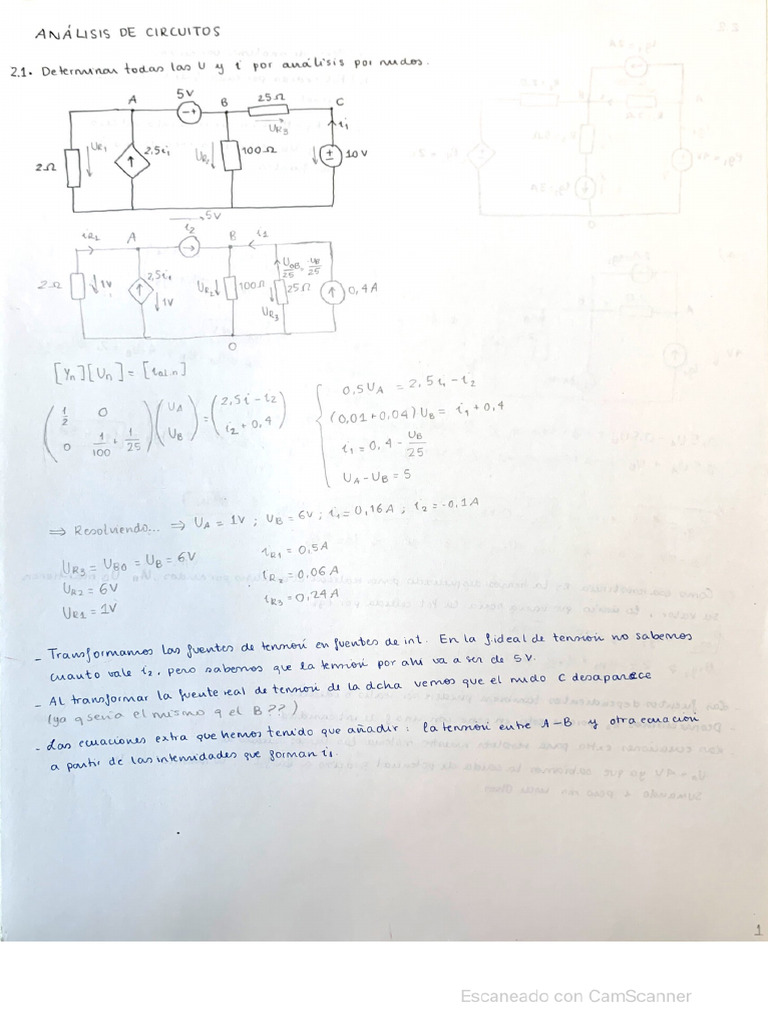 ANÁLISIS DE CIRCUITOS
2.1. Determinar todas las U y i por análisis por nudos.
A 5V B 25Ω C
UR3 i1
2Ω UR1 2,5i1 UR2 100Ω 10V
5V
iR1 A i2 B i1
2Ω 1V 2,5i1 1V UR2 100Ω UOB/25 = -UB/25 25Ω 0,4A
UR3
0
[Yn][Un] = [ial.n]
(1/2 0 ; 0 1/100 + 1/25) (UA ; UB) = (2,5i - i2 ; i2 + 0,4)
0,5UA = 2,5i1 - i2
(0,01 + 0,04)UB = i1 + 0,4
i1 = 0,4 - UB/25
UA - UB = 5
⇒ Resolviendo... ⇒ UA = 1V ; UB = 6V ; i1 = 0,16A ; i2 = -0,1A
UR3 = UBO = UB = 6V iR1 = 0,5A
UR2 = 6V iR2 = 0,06A
UR1 = 1V iR3 = 0,24A
- Transformamos las fuentes de tensión en fuentes de int. En la f.ideal de tensión no sabemos
cuanto vale i2, pero sabemos que la tensión por ahí va a ser de 5V.
- Al transformar la fuente real de tensión de la dcha vemos que el nudo C desaparece
(ya q sería el mismo q el B??)
- Las ecuaciones extra que hemos tenido que añadir: la tensión entre A-B y otra ecuación
a partir de las intensidades que forman i1.
1
Escaneado con CamScanner